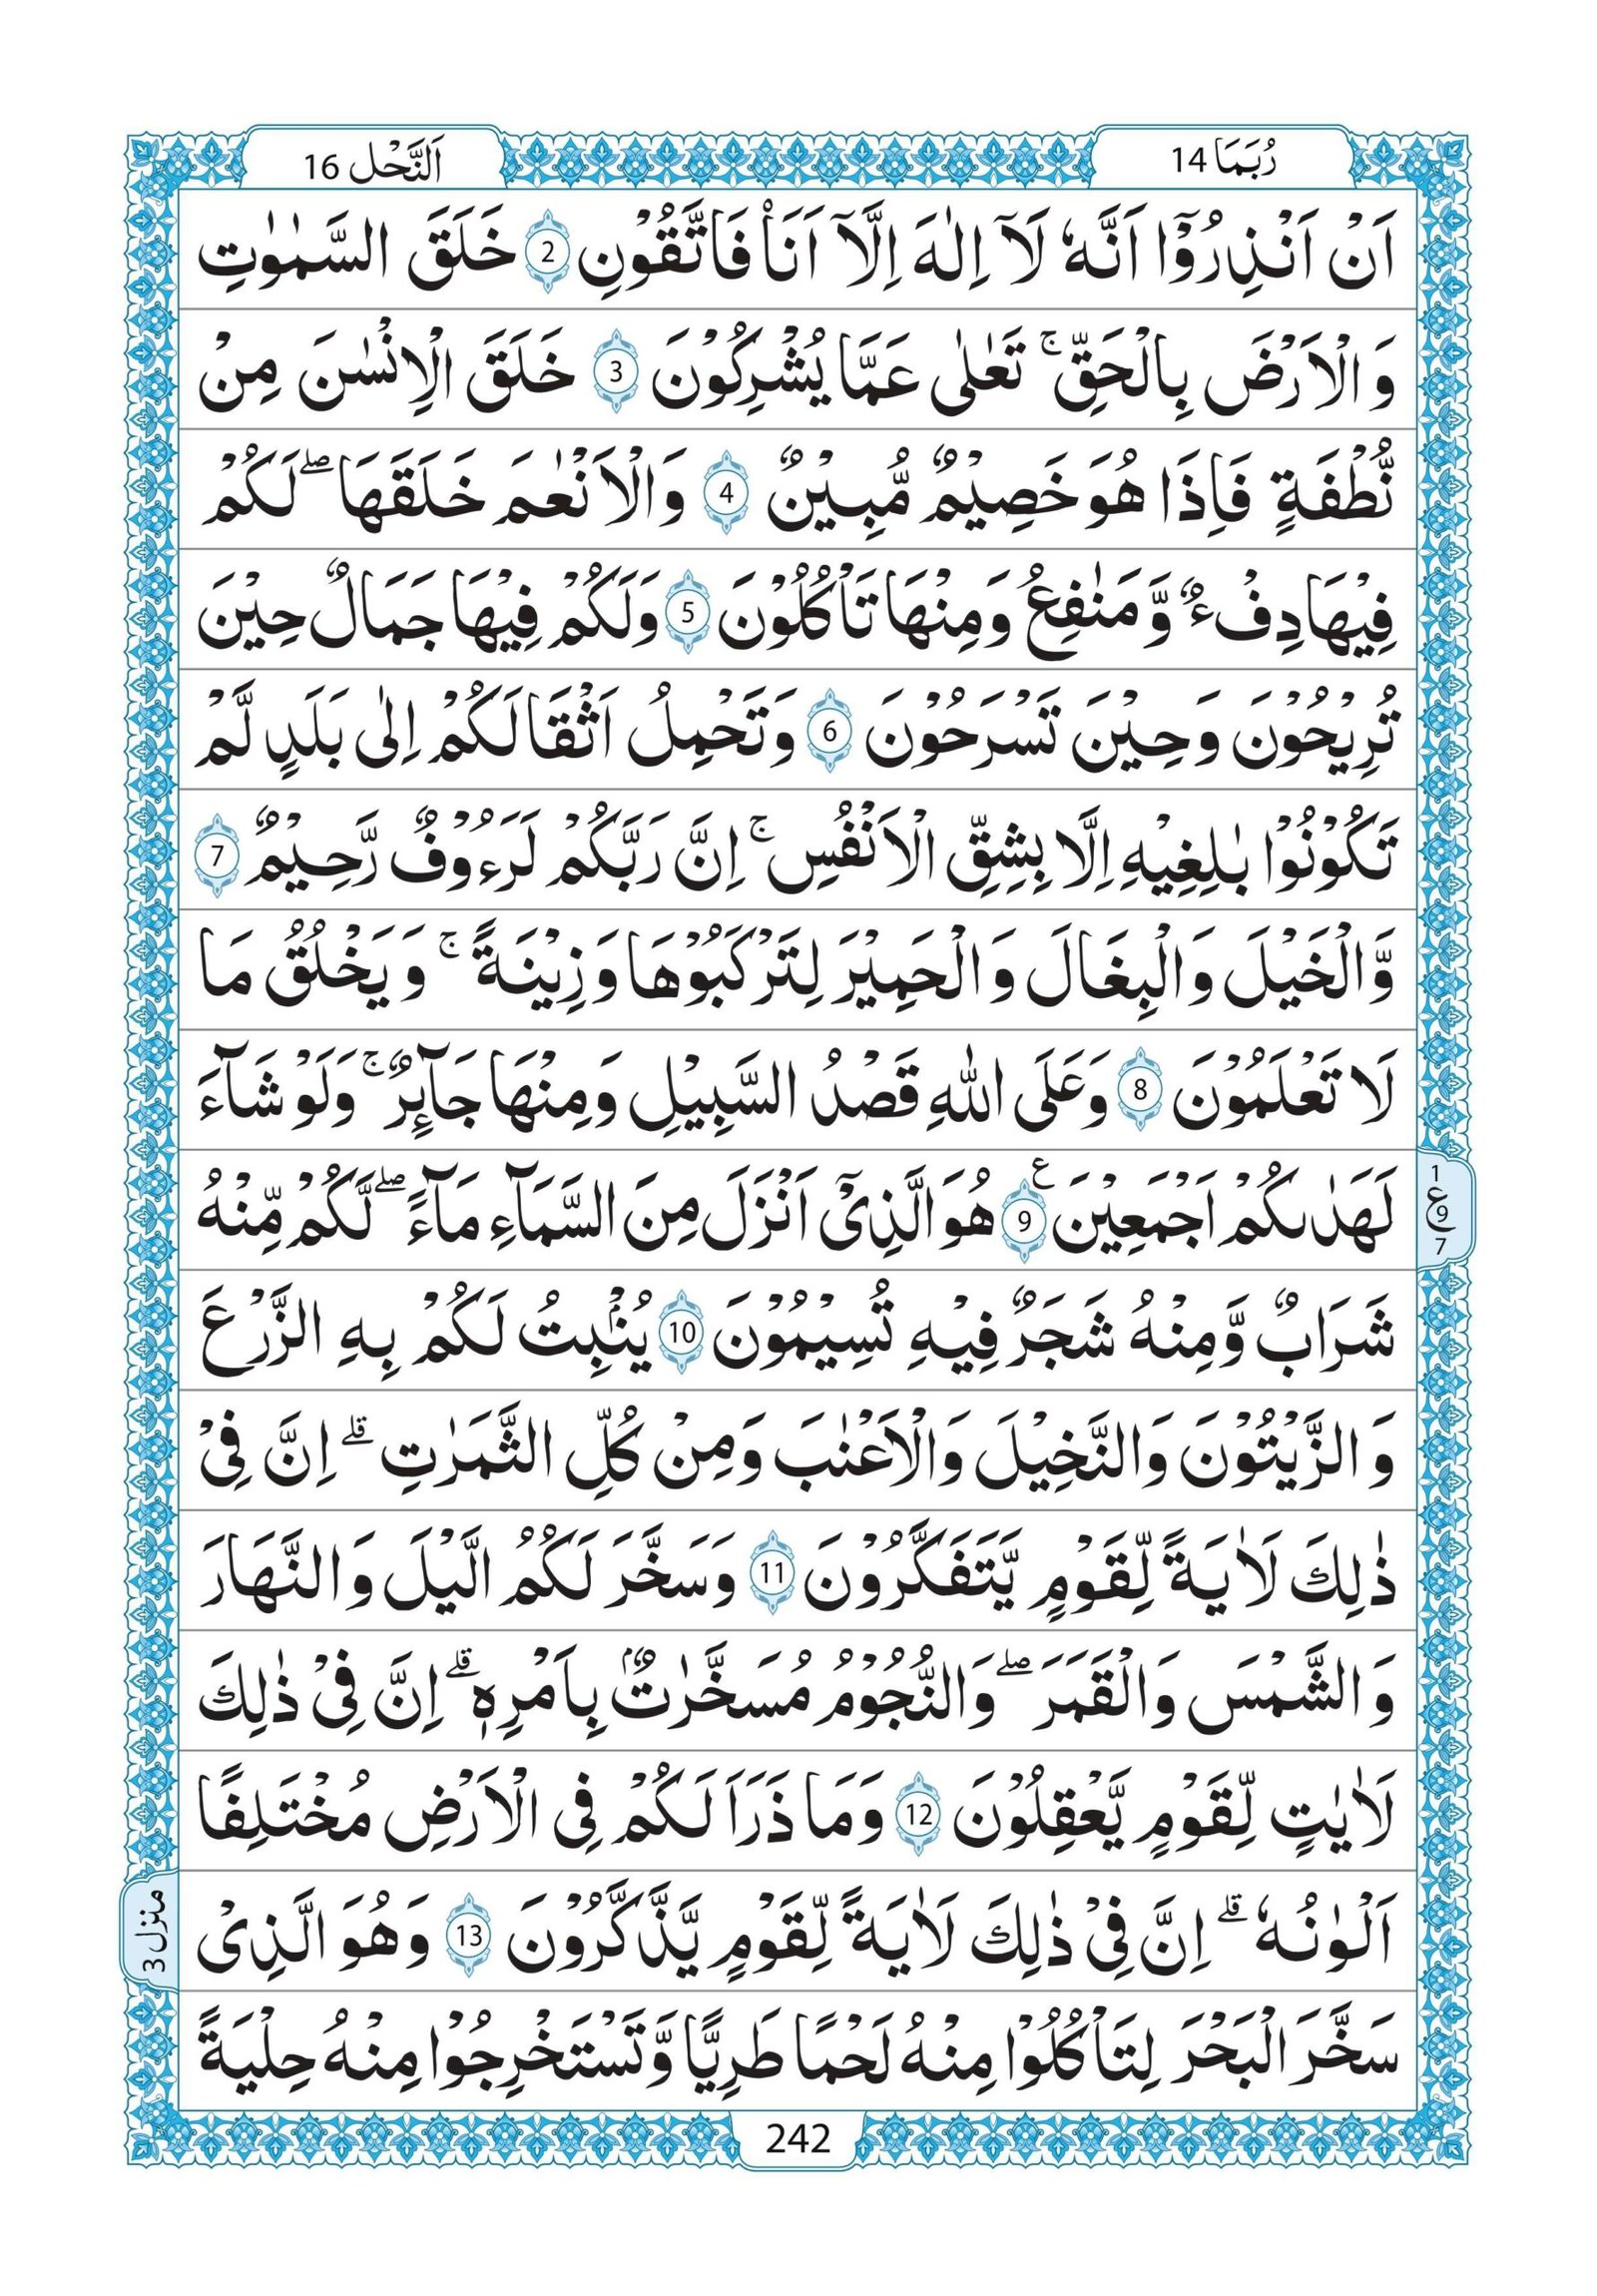 رُبَمَا 14
اَلنَّحْل 16
اَنْ اَنْذِرُوْٓا اَنَّهٗ لَآ اِلٰهَ اِلَّآ اَنَا۠ فَاتَّقُوْنِ 2 خَلَقَ السَّمٰوٰتِ
وَالْاَرْضَ بِالْحَقِّ ۚ تَعٰلٰى عَمَّا يُشْرِكُوْنَ 3 خَلَقَ الْاِنْسٰنَ مِنْ
نُّطْفَةٍ فَاِذَا هُوَ خَصِيْمٌ مُّبِيْنٌ 4 وَالْاَنْعٰمَ خَلَقَهَا ۖ لَكُمْ
فِيْهَا دِفْءٌ وَّمَنٰفِعُ وَمِنْهَا تَاْكُلُوْنَ 5 وَلَكُمْ فِيْهَا جَمَالٌ حِيْنَ
تُرِيْحُوْنَ وَحِيْنَ تَسْرَحُوْنَ 6 وَتَحْمِلُ اَثْقَالَكُمْ اِلٰى بَلَدٍ لَّمْ
تَكُوْنُوْا بٰلِغِيْهِ اِلَّا بِشِقِّ الْاَنْفُسِ ۚ اِنَّ رَبَّكُمْ لَرَءُوْفٌ رَّحِيْمٌ 7
وَّالْخَيْلَ وَالْبِغَالَ وَالْحَمِيْرَ لِتَرْكَبُوْهَا وَزِيْنَةً ۚ وَيَخْلُقُ مَا
لَا تَعْلَمُوْنَ 8 وَعَلَى اللّٰهِ قَصْدُ السَّبِيْلِ وَمِنْهَا جَآئِرٌ ۚ وَلَوْ شَآءَ
لَهَدٰىكُمْ اَجْمَعِيْنَ 9 ع هُوَ الَّذِىْٓ اَنْزَلَ مِنَ السَّمَآءِ مَآءً ۖ لَّكُمْ مِّنْهُ
1
ع 9
7
شَرَابٌ وَّمِنْهُ شَجَرٌ فِيْهِ تُسِيْمُوْنَ 10 يُنْۢبِتُ لَكُمْ بِهِ الزَّرْعَ
وَالزَّيْتُوْنَ وَالنَّخِيْلَ وَالْاَعْنٰبَ وَمِنْ كُلِّ الثَّمَرٰتِ ۗ اِنَّ فِىْ
ذٰلِكَ لَاٰيَةً لِّقَوْمٍ يَّتَفَكَّرُوْنَ 11 وَسَخَّرَ لَكُمُ الَّيْلَ وَالنَّهَارَ
وَالشَّمْسَ وَالْقَمَرَ ۖ وَالنُّجُوْمُ مُسَخَّرٰتٌۢ بِاَمْرِهٖ ۗ اِنَّ فِىْ ذٰلِكَ
لَاٰيٰتٍ لِّقَوْمٍ يَّعْقِلُوْنَ 12 وَمَا ذَرَاَ لَكُمْ فِى الْاَرْضِ مُخْتَلِفًا
اَلْوٰنُهٗ ۗ اِنَّ فِىْ ذٰلِكَ لَاٰيَةً لِّقَوْمٍ يَّذَّكَّرُوْنَ 13 وَهُوَ الَّذِىْ
منزل 3
سَخَّرَ الْبَحْرَ لِتَاْكُلُوْا مِنْهُ لَحْمًا طَرِيًّا وَّتَسْتَخْرِجُوْا مِنْهُ حِلْيَةً
242